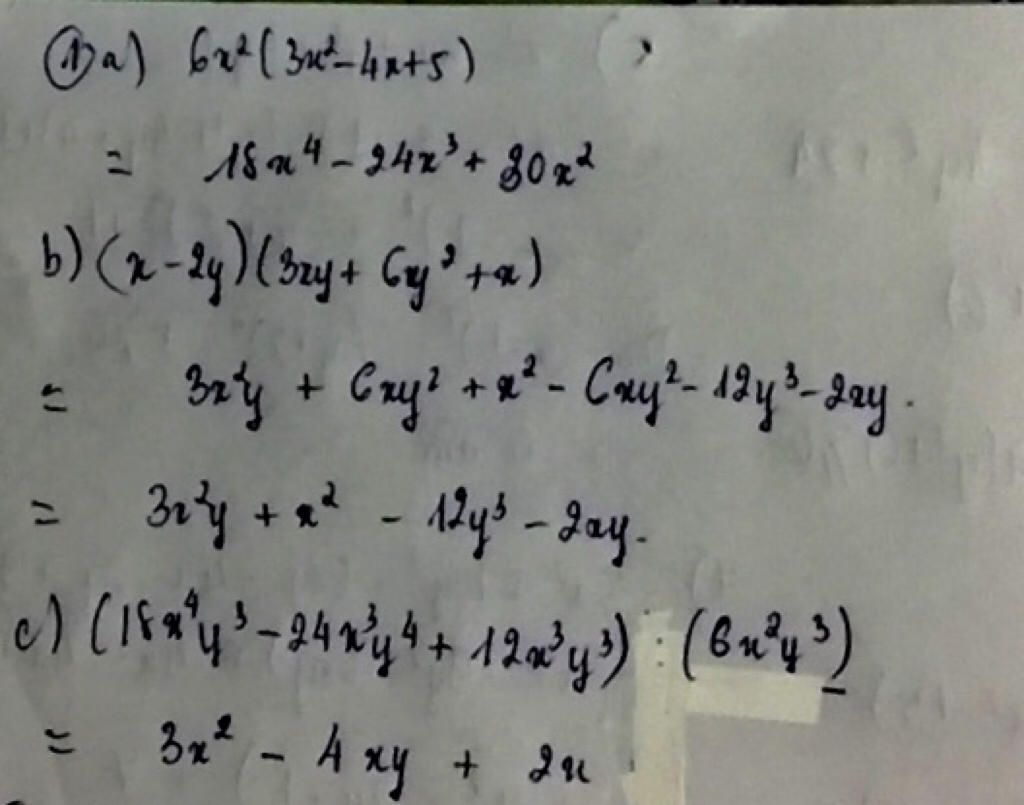 ① a) 6x²(3x²-4x+5)
= 18x⁴ - 24x³ + 30x²
b) (x-2y)(3xy + 6y² + x)
= 3x²y + 6xy² + x² - 6xy² - 12y³ - 2xy.
= 3x²y + x² - 12y³ - 2xy.
c) (18x⁴y³ - 24x³y⁴ + 12x³y³) : (6x²y³)
= 3x² - 4xy + 2x